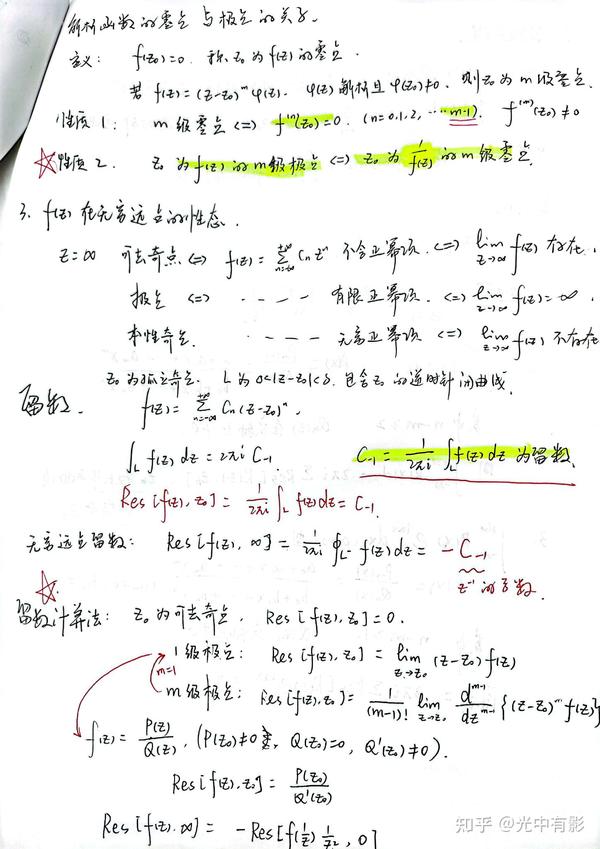 解析函数的零点与极点的关系.
定义: f(z₀)=0. 称 z₀ 为 f(z) 的零点.
若 f(z)=(z-z₀)ᵐ φ(z). φ(z)解析且 φ(z₀)≠0. 则 z₀ 为 m 级零点.
性质1: m 级零点 <=> f⁽ⁿ⁾(z₀)=0. (n=0.1.2, ⋯ m-1). f⁽ᵐ⁾(z₀)≠0
☆性质2. z₀ 为 f(z) 的 m 级极点 <=> z₀ 为 1/f(z) 的 m 级零点.
3. f(z) 在无穷远点的性态.
z=∞ 可去奇点 <=> f(z)=∑_{n=-∞}^{+∞} Cₙ zⁿ 不含正幂项. <=> lim_{z→∞} f(z) 存在.
极点 <=> - - - - 有限正幂项. <=> lim_{z→∞} f(z)=∞.
本性奇点. - - - - 无穷正幂项 <=> lim_{z→∞} f(z) 不存在
z₀ 为孤立奇点. L 为 0<|z-z₀|<δ. 包含 z₀ 的逆时针闭曲线.
留数. f(z)=∑_{n=-∞}^{+∞} Cₙ(z-z₀)ⁿ.
∫_L f(z) dz = 2πi C₋₁. C₋₁ = 1/2πi ∫_L f(z) dz 为留数.
Res[f(z), z₀] = 1/2πi ∫_L f(z)dz = C₋₁.
无穷远点留数: Res[f(z), ∞] = 1/2πi ∮_{L⁻} f(z)dz = -C₋₁
z⁻¹ 的系数.
☆
留数计算法: z₀ 为可去奇点, Res[f(z), z₀]=0.
1级极点: Res[f(z), z₀] = lim_{z→z₀} (z-z₀)f(z)
m=1
m级极点: Res[f(z), z₀] = 1/(m-1)! lim_{z→z₀} dᵐ⁻¹/dzᵐ⁻¹ {(z-z₀)ᵐ f(z)}
f(z)= P(z)/Q(z), (P(z₀)≠0, Q(z₀)=0, Q'(z₀)≠0).
Res[f(z), z₀] = P(z₀)/Q'(z₀)
Res[f(z), ∞] = -Res[f(1/z) 1/z², 0]
知乎 @光中有影